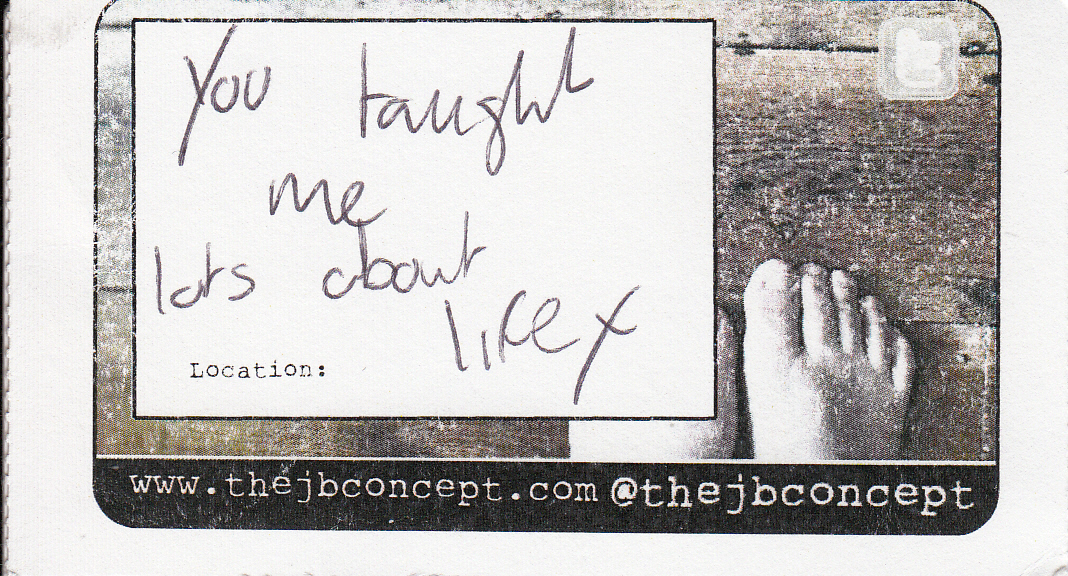 You taught
me
lots about
life x
Location:
www.thejbconcept.com @thejbconcept